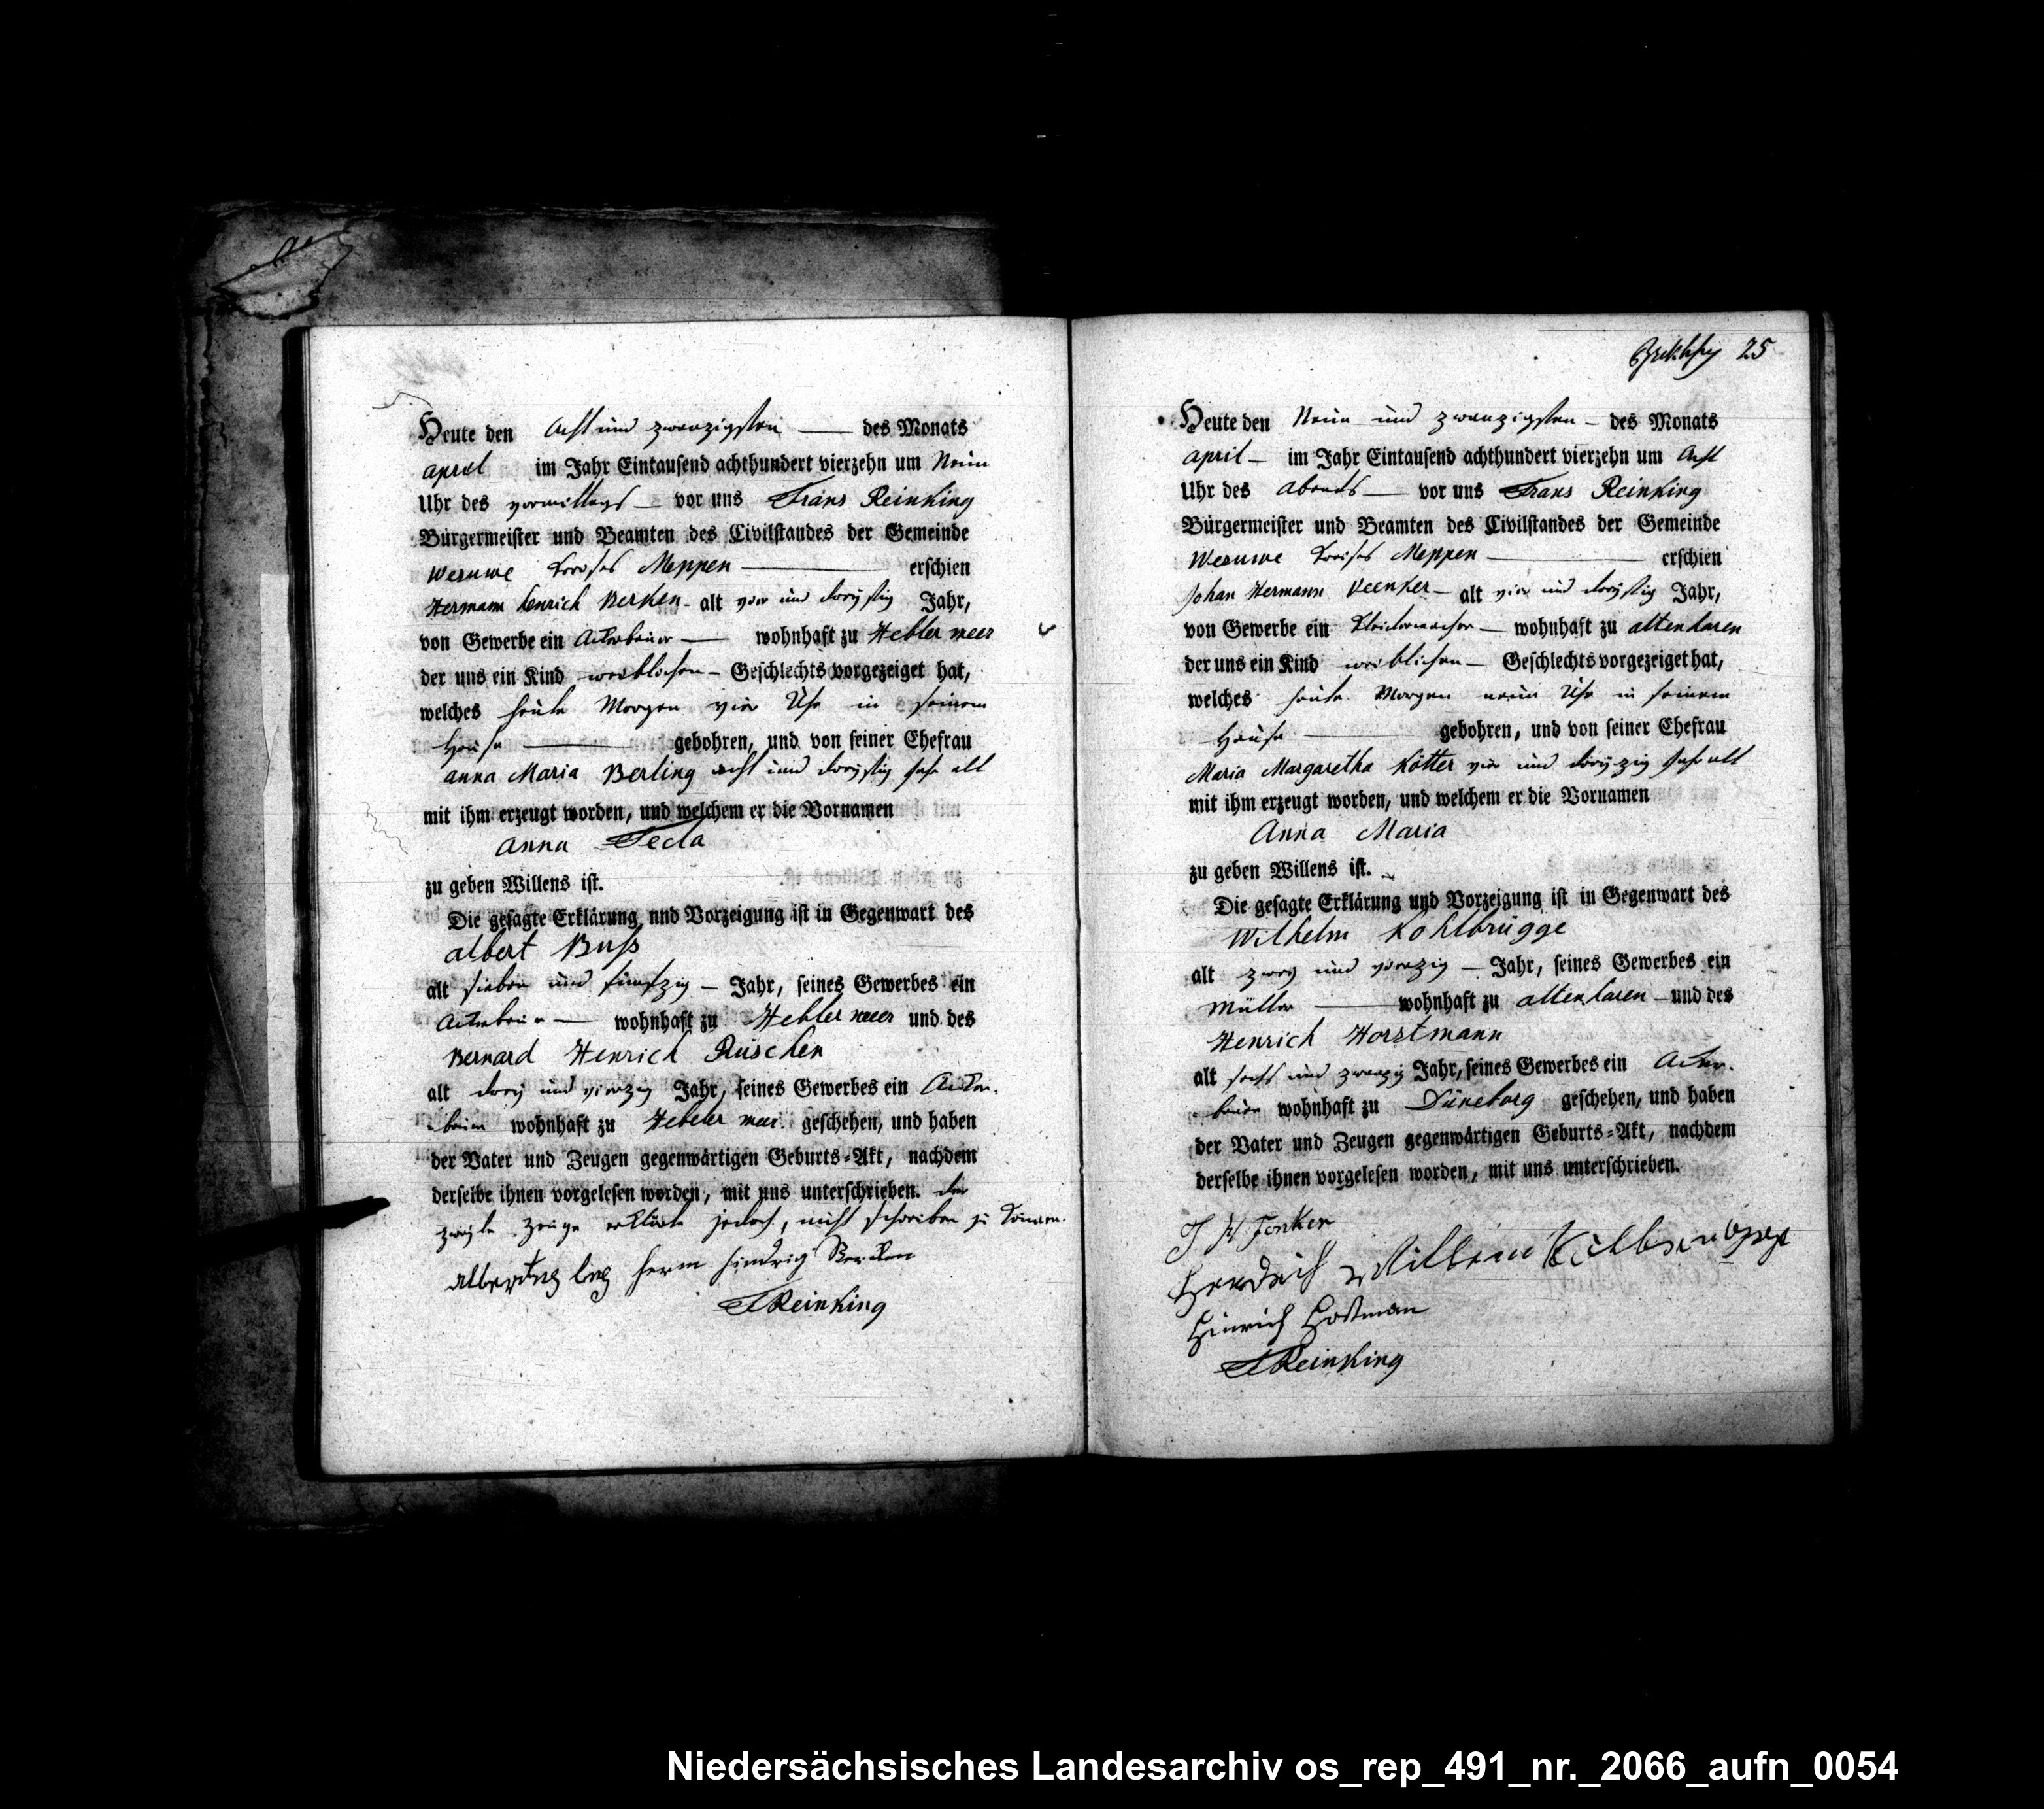 Heute den Acht und zwanzigsten — des Monats
april im Jahr Eintausend achthundert vierzehn um Neun
Uhr des vormittags — vor uns Frans Reinking
Bürgermeister und Beamten des Civilstandes der Gemeinde
Wesuwe Kreises Meppen — erschien
Hermann henrich Berken - alt vier und dreyßig Jahr,
von Gewerbe ein Ackerbauer — wohnhaft zu Hebler meer
der uns ein Kind weiblichen - Geschlechts vorgezeiget hat,
welches heute Morgen vier Uhr in seinem
Hause — gebohren, und von seiner Ehefrau
anna Maria Berling acht und dreyßig Jahr alt
mit ihm erzeugt worden, und welchem er die Vornamen
Anna Tecla
zu geben Willens ist.
Die gesagte Erklärung und Vorzeigung ist in Gegenwart des
albert Buß
alt sieben und funfzig — Jahr, seines Gewerbes ein
Ackerbauer — wohnhaft zu Hebler meer und des
Bernard Henrich Rüschen
alt drey und vierzig Jahr, seines Gewerbes ein Acker-
bauer wohnhaft zu Hebeler meer geschehen, und haben
der Vater und Zeugen gegenwärtigen Geburts-Akt, nachdem
derselbe ihnen vorgelesen worden, mit uns unterschrieben. der
zweyte Zeuge erklärte jedoch, nicht schreiben zu können.
herm hindrig Berken
F Reinking
25
Heute den Neun und zwanzigsten — des Monats
april — im Jahr Eintausend achthundert vierzehn um Acht
Uhr des Abends — vor uns Frans Reinking
Bürgermeister und Beamten des Civilstandes der Gemeinde
Wesuwe Kreises Meppen — erschien
Johan Hermann Veenker — alt vier und dreyßig Jahr,
von Gewerbe ein Kleidermacher — wohnhaft zu altenharen
der uns ein Kind weiblichen — Geschlechts vorgezeiget hat,
welches heute Morgen neun Uhr in seinem
Hause — gebohren, und von seiner Ehefrau
Maria Margaretha Kötter vier und dreyzig Jahr alt
mit ihm erzeugt worden, und welchem er die Vornamen
Anna Maria
zu geben Willens ist.
Die gesagte Erklärung und Vorzeigung ist in Gegenwart des
Wilhelm Kohlbrügge
alt zwey und vierzig — Jahr, seines Gewerbes ein
Müller — wohnhaft zu altenharen — und des
Henrich Horstmann
alt sechs und zwanzig Jahr, seines Gewerbes ein Acker-
bauer wohnhaft zu Düneborg geschehen, und haben
der Vater und Zeugen gegenwärtigen Geburts-Akt, nachdem
derselbe ihnen vorgelesen worden, mit uns unterschrieben.
J H Fenker
Hinrich Hostman
F Reinking
Niedersächsisches Landesarchiv os_rep_491_nr._2066_aufn_0054